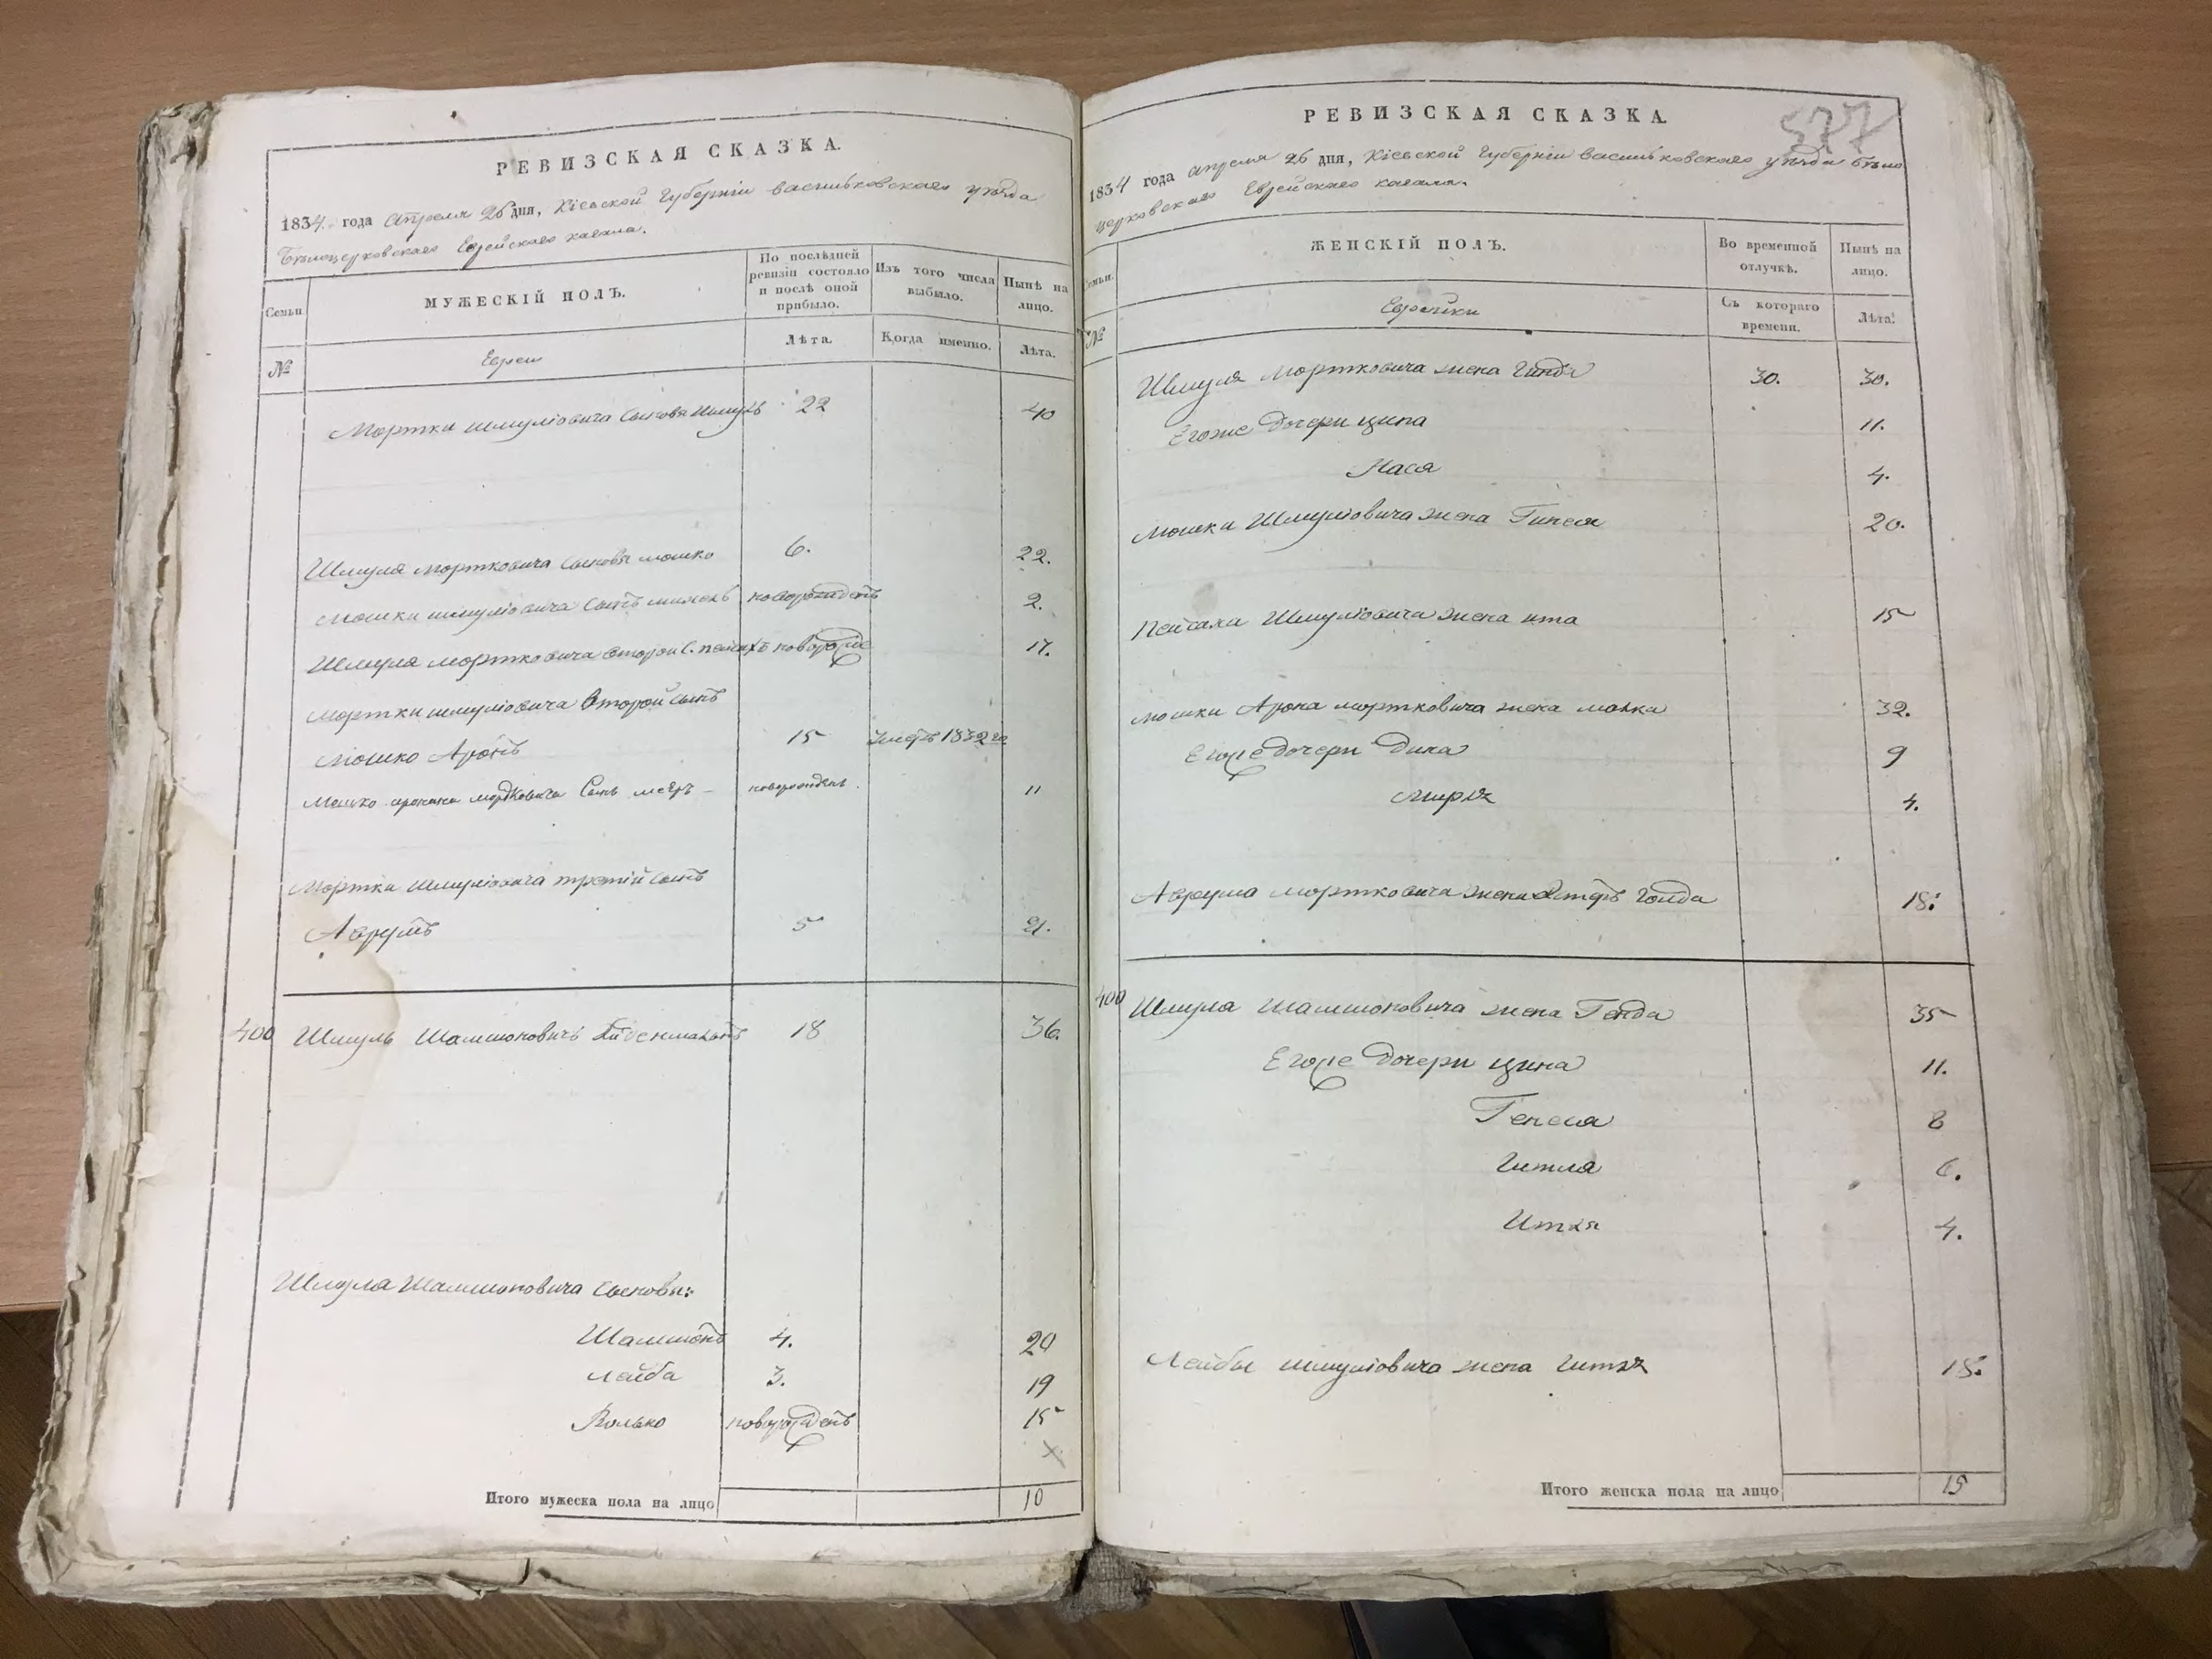 РЕВИЗСКАЯ СКАЗКА.
1834 года Апреля 26 дня, Кіевской Губерніи васильковскаго уѣзда
Бѣлоцерковскаго Еврейскаго кагала.
Семьи.
МУЖЕСКІЙ ПОЛЪ.
По послѣдней ревизіи состояло и послѣ оной прибыло.
Изъ того числа выбыло.
Нынѣ на лицо.
№
Евреи
Лѣта.
Когда именно.
Лѣта.
Мортки шмуліовича сыновя Шмуль 22 40
Шмуля мортковича сыновя мошко 6. 22.
Мошки шмуліовича сынъ новорожденъ 2.
Шмуля мортковича второй с. новорожде 17.
Мортки шмуліовича второй сынъ
Мошко Аронъ 15 1832 го
мордковича сынъ мееръ новорожден. 11
Мортка Шмуліовича третій сынъ
Аврумъ 5 21.
400 Шмуль Шамшоновичъ 18 36.
Шмула Шамшоновича сыновя:
Шамшонъ 4. 20
Лейба 3. 19
Волько новорожденъ 15
х
Итого мужеска пола на лицо 10
577
РЕВИЗСКАЯ СКАЗКА.
1834 года апреля 26 дня, Кіевской Губерніи васильковскаго уѣзда бѣло
церковскаго Еврейскаго кагала.
Семьи.
ЖЕНСКІЙ ПОЛЪ.
Во временной отлучкѣ.
Нынѣ на лицо.
№
Еврейки
Съ котораго времени.
Лѣта.
Шмуля Мортковича жена Гинда 30. 30.
Егоже дочери ципа 11.
Хася 4.
Мошки Шмуліовича жена Гинеся 20.
Пейсаха Шмуліовича жена ита 15
мошки Арона мортковича жена малка 32.
Егоже дочери Дина 9
Мирля 4.
Аврума мортковича жена Эстеръ Голда 18.
400 Шмула Шамшоновича жена Генда 35
Егоже дочери цина 11.
Генеся 8
Гитля 6.
Итля 4.
Лейбы шмуліовича жена Гитля 18.
Итого женска пола на лицо 15